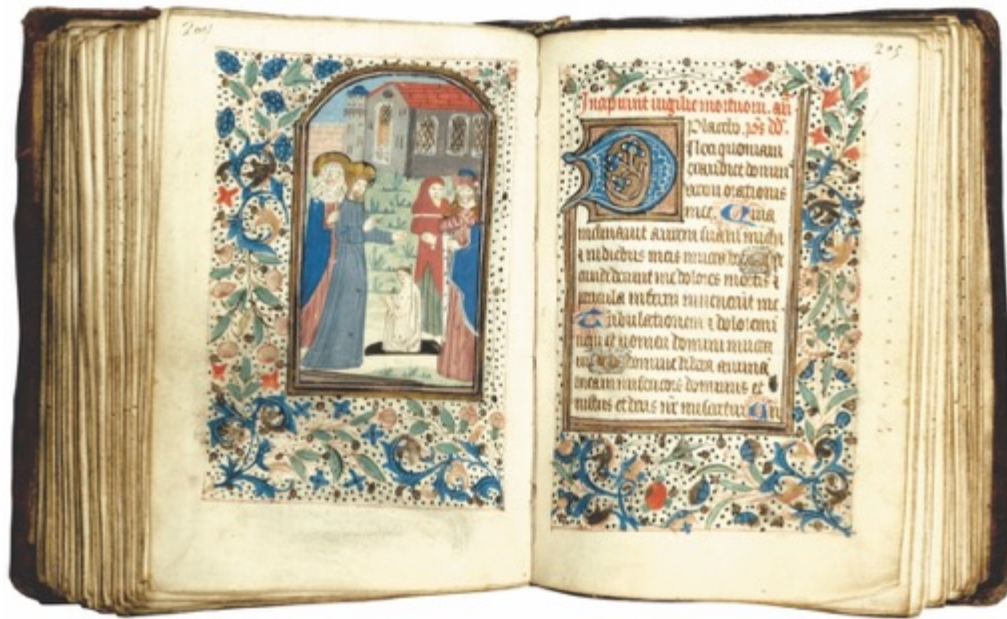 205
Incipiunt vigilie mortuorum. an
Placebo. ps dd.
Dilexi quoniam
exaudiet domin
vocem orationis
mee. Quia
inclinavit aurem suam michi
& in diebus meis invocabo
dederunt me dolores mortis &
pericula inferni invenerunt me
Tribulationem & dolorem in
veni et nomen domini invoca
vi domine libera anima
meam misericors dominus et
iustus et deus nr miseretur